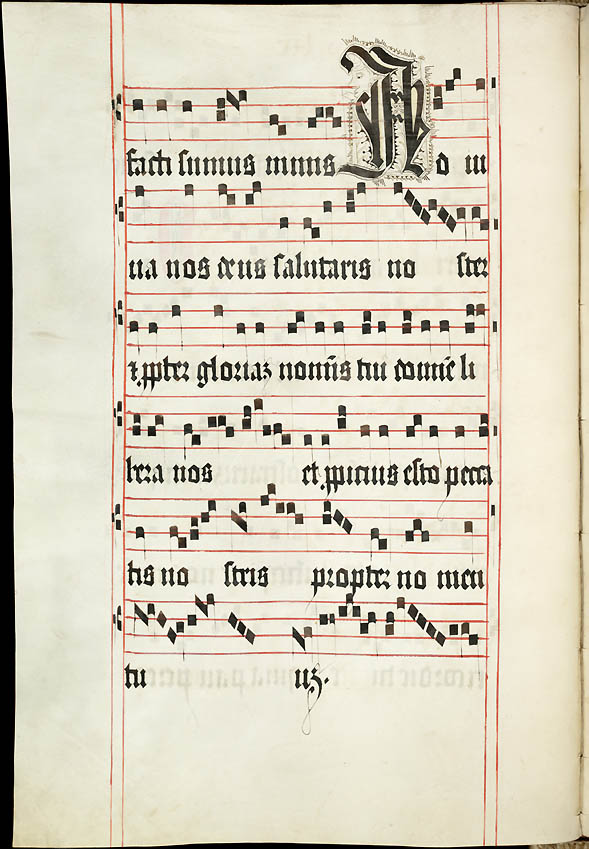 facti sumus nimis Ad iu
ua nos deus salutaris no ster
⁊ ꝓpter gloriaꝫ noĩs tui domĩe li
bera nos et ꝓpicius esto pecca
tis no stris propter no men
tu uꝫ.